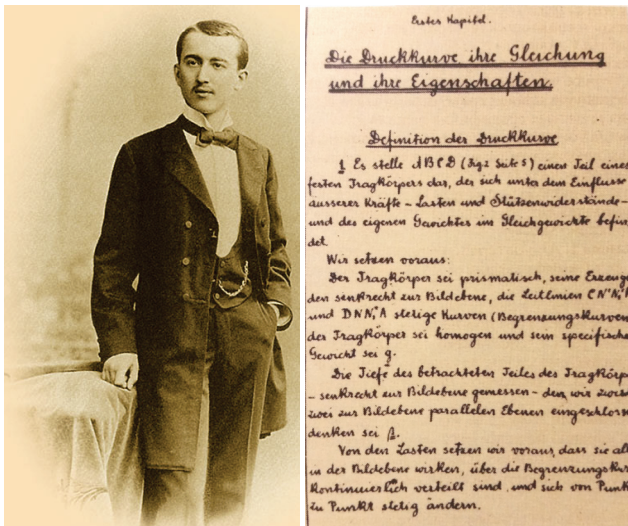 Erstes Kapitel.
Die Druckkurve ihre Gleichung
und ihre Eigenschaften.
Definition der Druckkurve
1 Es stelle ABCD (Fig 2 Seite 5) einen Teil eines
festen Tragkörpers dar, der sich unter dem Einflusse
äusserer Kräfte – Lasten und Stützenwiderstände –
und des eigenen Gewichtes im Gleichgewichte befin
det.
Wir setzen voraus:
Der Tragkörper sei prismatisch, seine Erzeugen
den senkrecht zur Bildebene, die Leitlinien
und stetige Kurven (Begrenzungskurven
der Tragkörper sei homogen und sein specifische
Gewicht sei g.
Die Tiefe des betrachteten Teiles des Tragkörpe
– senkrecht zur Bildebene gemessen – den wir
zwei zur Bildebene parallelen Ebenen eingeschlosse
denken sei β.
Von den Lasten setzen wir voraus, dass sie all
in der Bildebene wirken, über die Begrenzungskur
kontinuierlich verteilt sind und sich von Punk
zu Punkt stetig ändern.